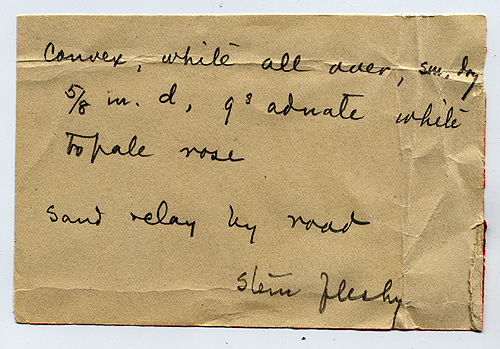 Convex, white all over, sm. dry
5/8 in. d, gs adnate white
to pale rose
sand relay by road
Stem fleshy